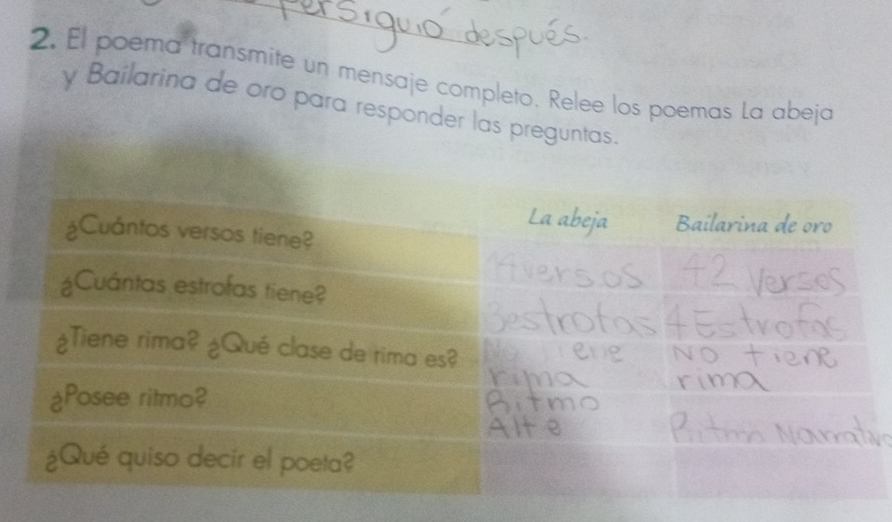 Persiguió después.
2. El poema transmite un mensaje completo. Relee los poemas La abeja
y Bailarina de oro para responder las preguntas.
La abeja Bailarina de oro
¿Cuántos versos tiene? versos 42 Versos
¿Cuántas estrofas tiene? 3estrofas 4 Estrofas
¿Tiene rima? ¿Qué clase de rima es? No tiene NO tiene
rima rima
¿Posee ritmo? Ritmo
Alto Ritmo Narrativo
¿Qué quiso decir el poeta?